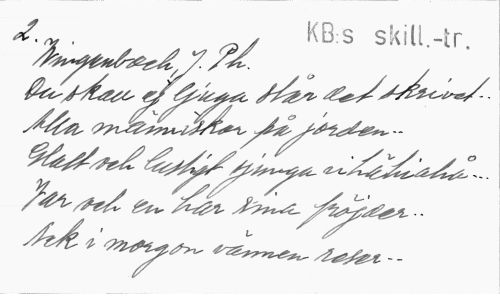 2.
KB:s skill.-tr.
Ningenbach, J. Ph.
Du skall ej ljuga står det skrivet..
Alla människor på jorden..
Glatt och lustigt sjunga vi håhiahå...
Var och en har sina fröjder..
Ack i morgon vännen reser..